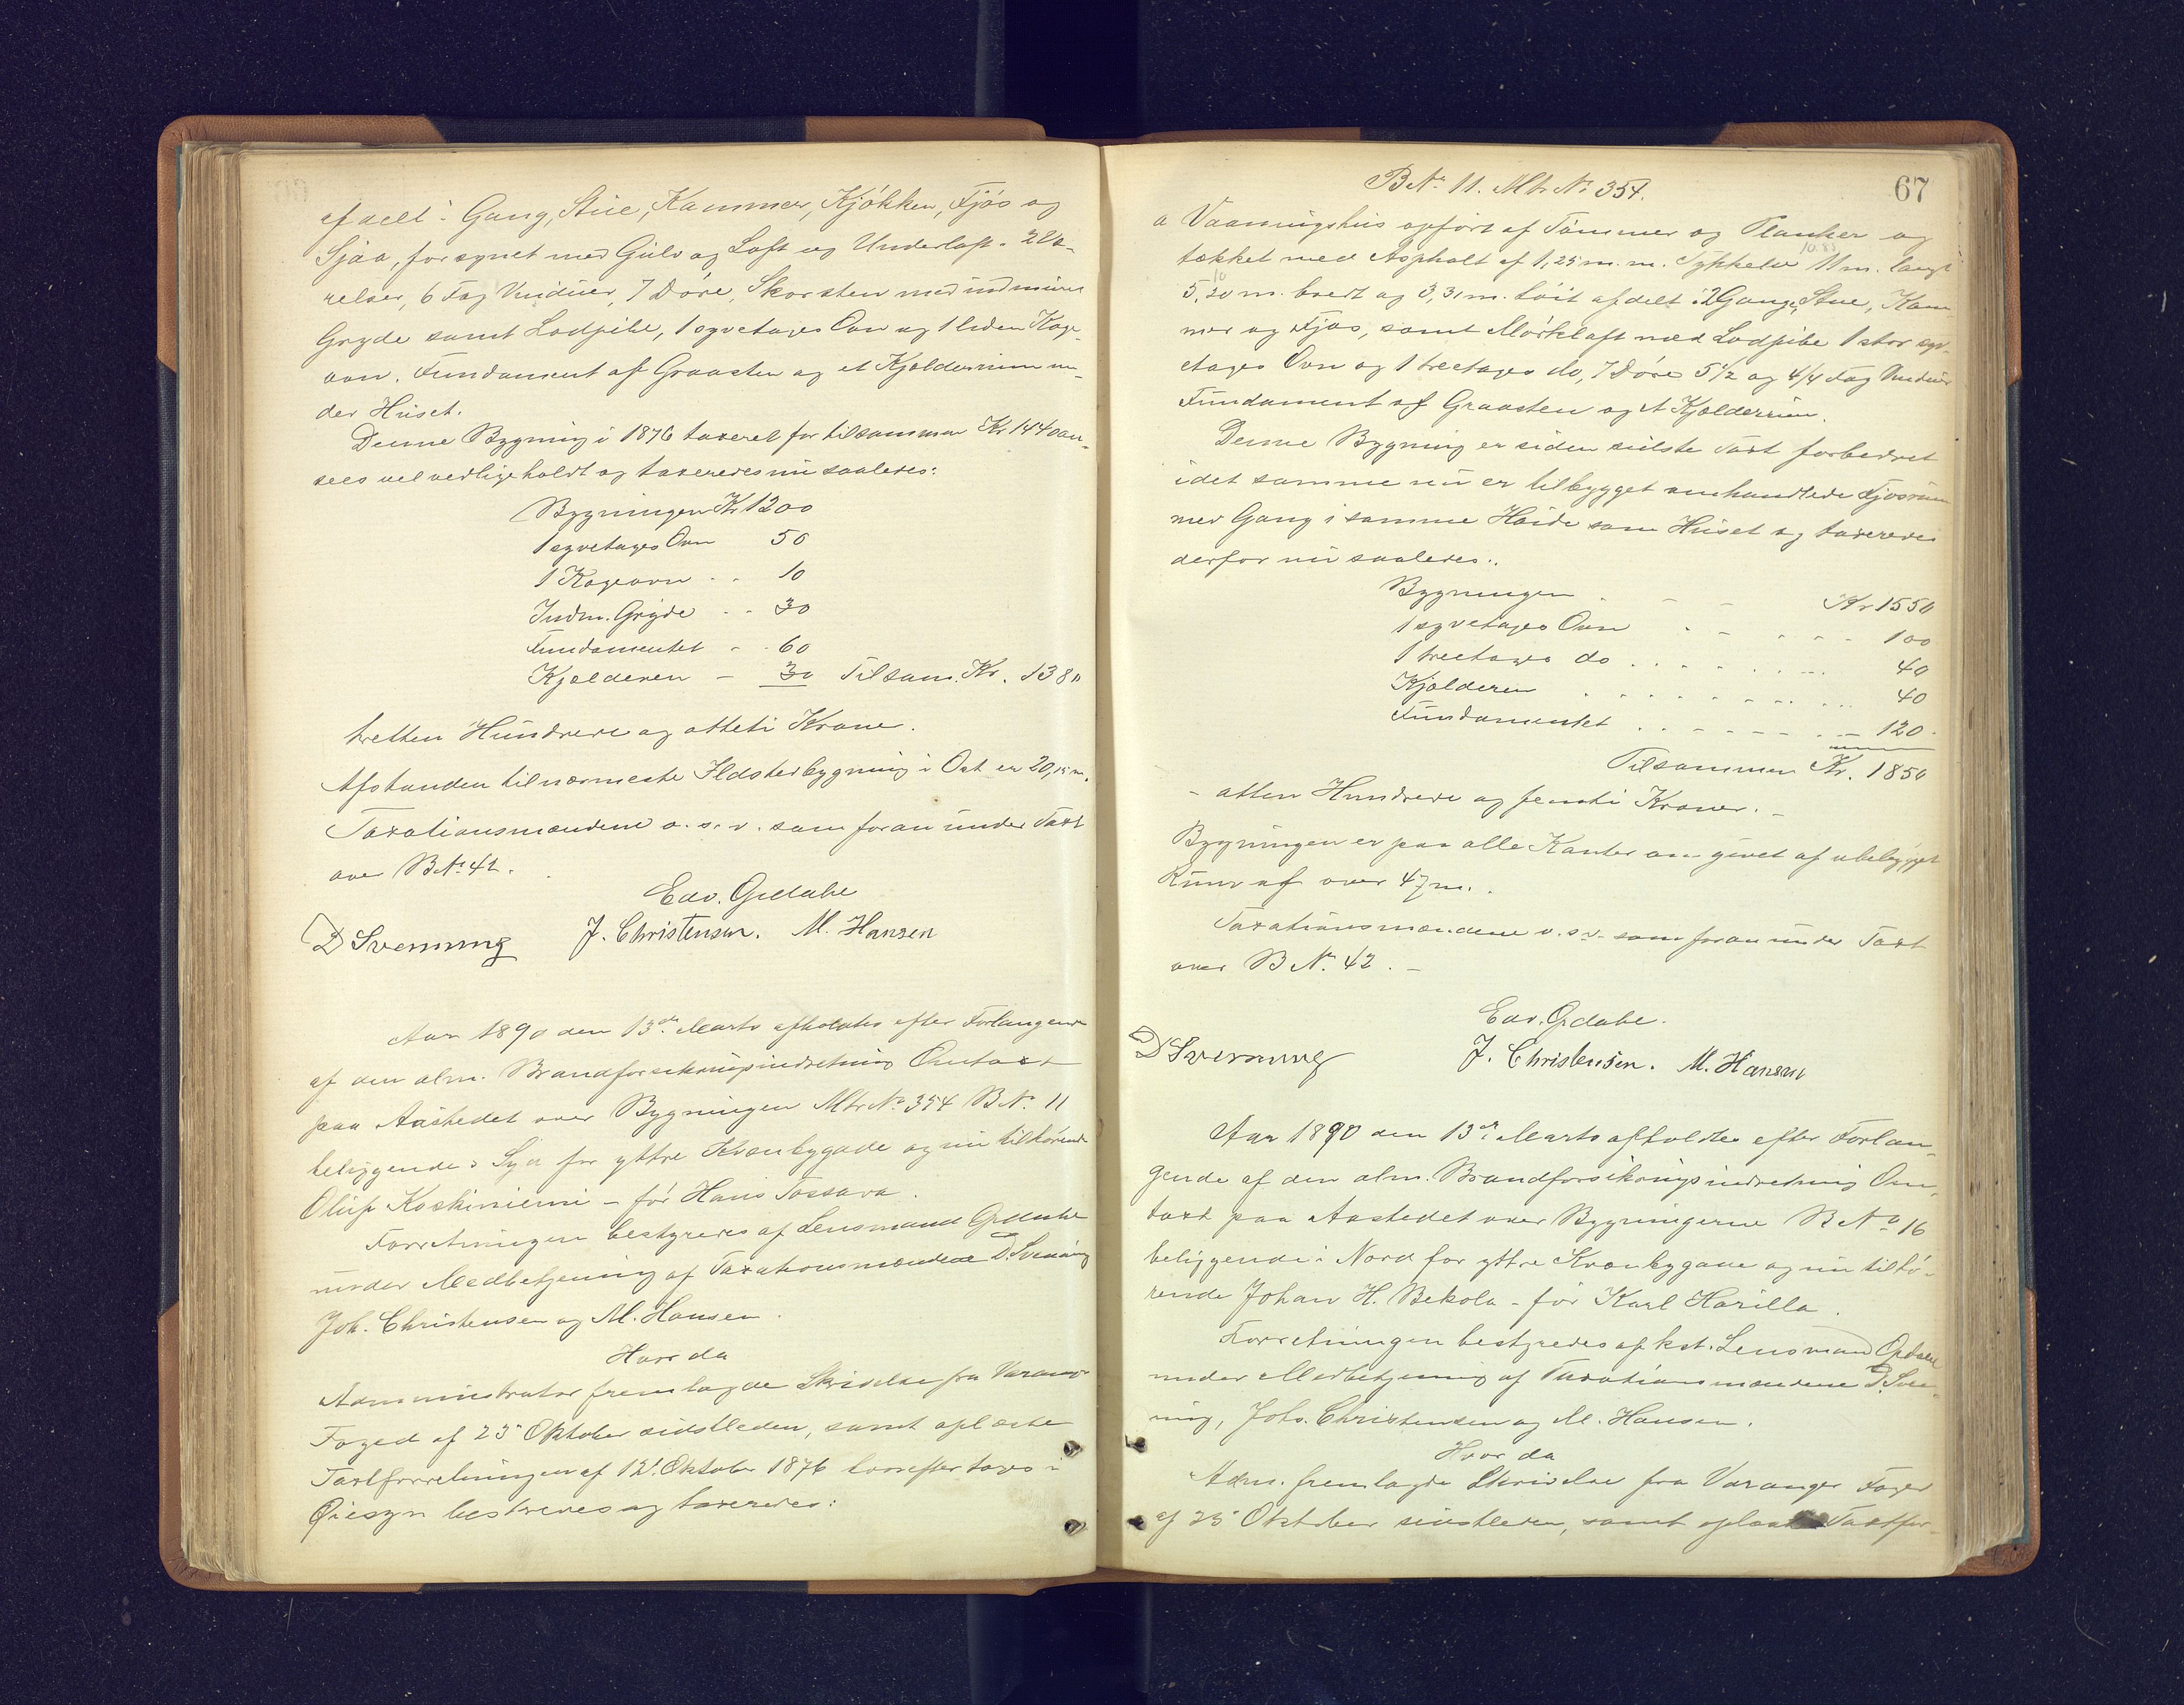 afdelt i Gang, Stue, Kammer, Kjökken, Fjös og
Sjåa, forsynet med Gulv og Loft og Underloft. 2 Væ-
relser, 6 Fag Vinduer, 7 Döre, Skorsten med indmuret
Gryde samt Lodpibe, 1 syvetages Ovn og 1 liden Koge-
ovn. Fundament af Graasten og et Kjælderrum un-
der Huset.
Denne Bygning i 1876 taxeret for tilsammen Kr 1440 an-
sees vel vedligeholdt og taxeredes nu saaledes:
Bygningen Kr 1200
1 syvetages Ovn 50
1 Kogeovn - - 10
Indm. Gryde - - 30
Fundamentet - - 60
Kjælderen - 30 Tilsam. Kr. 1380
tretten Hundrede og otteti Krone.
Afstanden til nærmeste Ildstedbygning i Ost er 20,15 m.
Taxationsmændene o. s. v. som foran under Taxt
over B.No. 42.
Edv. Opdahl
D Svenning J. Christensen. M. Hansen
Aar 1890 den 13de Marts afholdtes efter Forlangende
af den alm. Brandforsikringsindretning Omtaxt
paa Aastedet over Bygningen Mtr No. 354 B.No. 11
beliggende i Syd for yttre Kvænbygade og nu tilhörende
Oluf Koskiniemi - för Hans Tossava.
Forretningen bestyredes af Lensmand Opdahl
under Medbetjening af Taxationsmændene D. Svenning
Joh. Christensen og M. Hansen.
Hvor da
Administrator fremlagde Skrivelse fra Varanger
Foged af 25 Oktober sidstleden, samt oplæste
Taxtforretningen af 12. Oktober 1876 hvorefter toges i
Öiesyn beskreves og taxeredes:
67
B.No. 11. Mtr No. 354.
a Vaaningshus opfört af Tömmer og Planker og
10.85
tækket med Asphalt af 1,25 m.m. Tykkelse 11 m. langt
10
5,20 m. bredt og 3,31 m. höit afdelt i 2 Gange, Stue, Kam-
mer og Fjös, samt Mörkloft med Lodpibe 1 stor syv-
etages Ovn og 1 treetages do, 7 Döre 5 1/2 og 4/4 Fag Vinduer
Fundament af Graasten og et Kjælderrum.
Denne Bygning er siden sidste Taxt forbedret
idet samme nu er tilbygget omhandlede Fjösrum
med Gang i samme Höide som Huset og taxeredes
derfor nu saaledes:
Bygningen - - - Kr 1550
1 syvetages Ovn - - - 100
1 treetages do - - - 40
Kjælderen - - - 40
Fundamentet - - - 120
Tilsammen Kr. 1850
- atten Hundrede og femti Kroner. -
Bygningen er paa alle Kanter omgivet af ubebygget
Rum af over 47 m.
Taxationsmændene o. s. v. som foran under Taxt
over B No. 42. -
Edv. Opdahl.
D Svenning J. Christensen. M. Hansen
Aar 1890 den 13de Marts afholdtes efter Forlan-
gende af den alm. Brandforsikringsindretning Om-
taxt paa Aastedet over Bygningerne B No. 16
beliggende i Nord for yttre Kvænbygade og nu tilhö-
rende Johan H. Bekola - för Karl Harilla.
Forretningen bestyredes af kst. Lensmand Opdahl
under Medbetjening af Taxationsmændene D. Sven-
ning, Joh. Christensen og M. Hansen.
Hvor da
Adm. fremlagde Skrivelse fra Varanger Foged
af 25 Oktober sidstleden, samt oplæste Taxtfor-